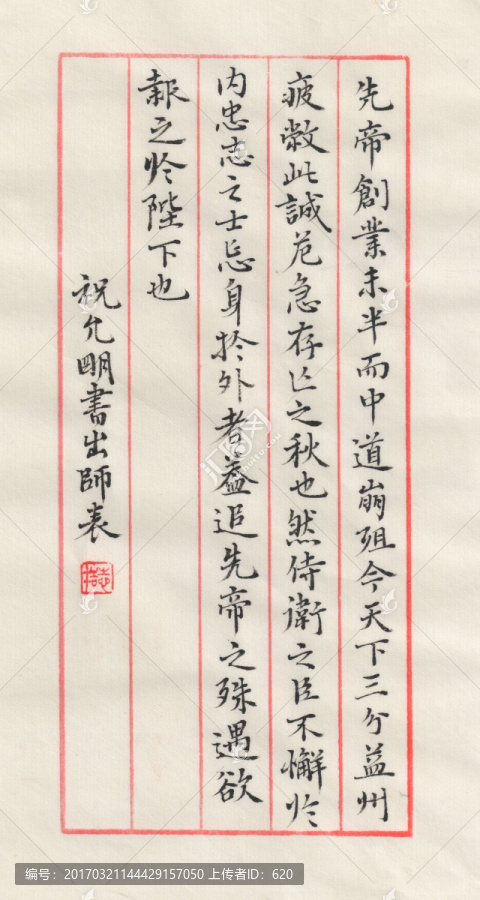 先帝創業未半而中道崩殂今天下三分益州
疲敝此誠危急存亡之秋也然侍衛之臣不懈於
內忠志之士忘身於外者蓋追先帝之殊遇欲
報之於陛下也
祝允明書出師表
编号：20170321144429157050 上传者ID：620